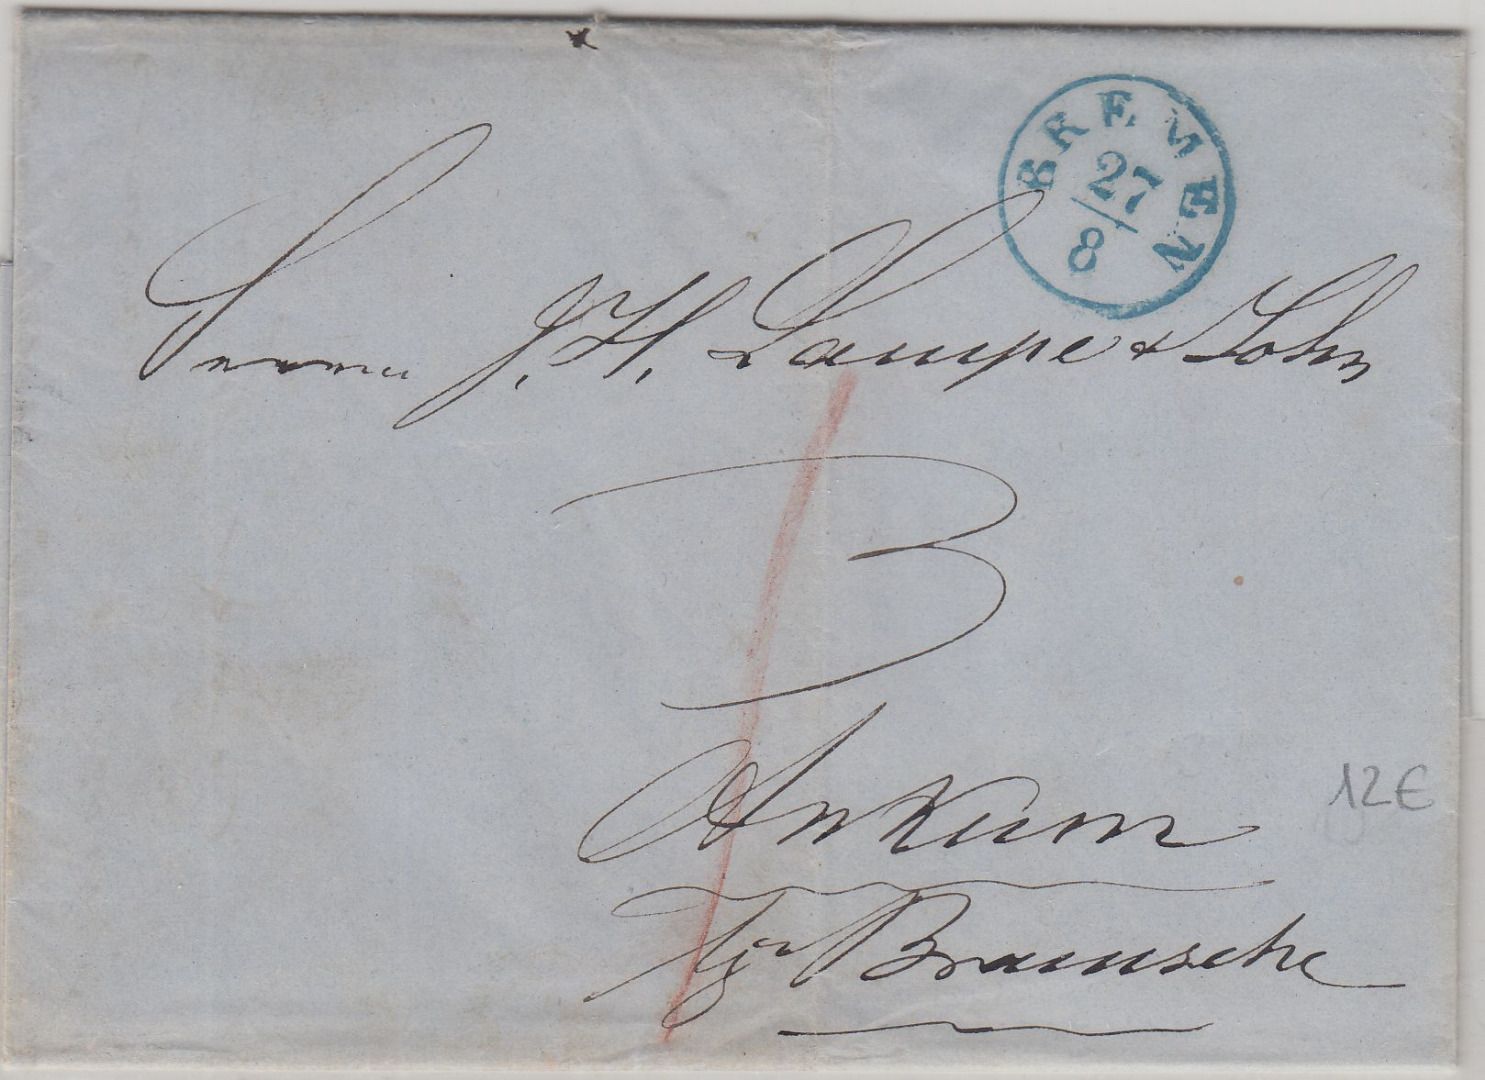 BREMEN
27/8
Herren J. H. Lampe & Sohn
Ankum
Bramsche
12€